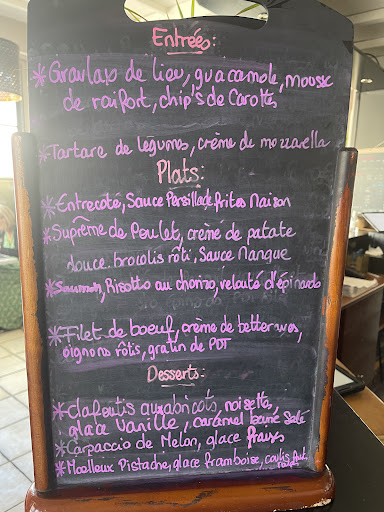 Entrées:
* Gravlax de lieu, guacamole, mousse
de raifort, chip's de Carottes
* Tartare de légumes, crème de mozzarella
Plats:
* Entrecôte, Sauce Persillade, frites Maison
* Suprême de Poulet, crème de patate
douce, brocolis rôti, Sauce Mangue
* Saumon, Risotto au chorizo, velouté d'épinards
* Filet de boeuf, crème de betteraves,
oignons rôtis, gratin de PDT
Desserts:
* Clafoutis aux abricots, noisette,
glace Vanille, caramel beurre Salé
* Carpaccio de Melon, glace
* Moelleux Pistache, glace framboise, coulis fruit